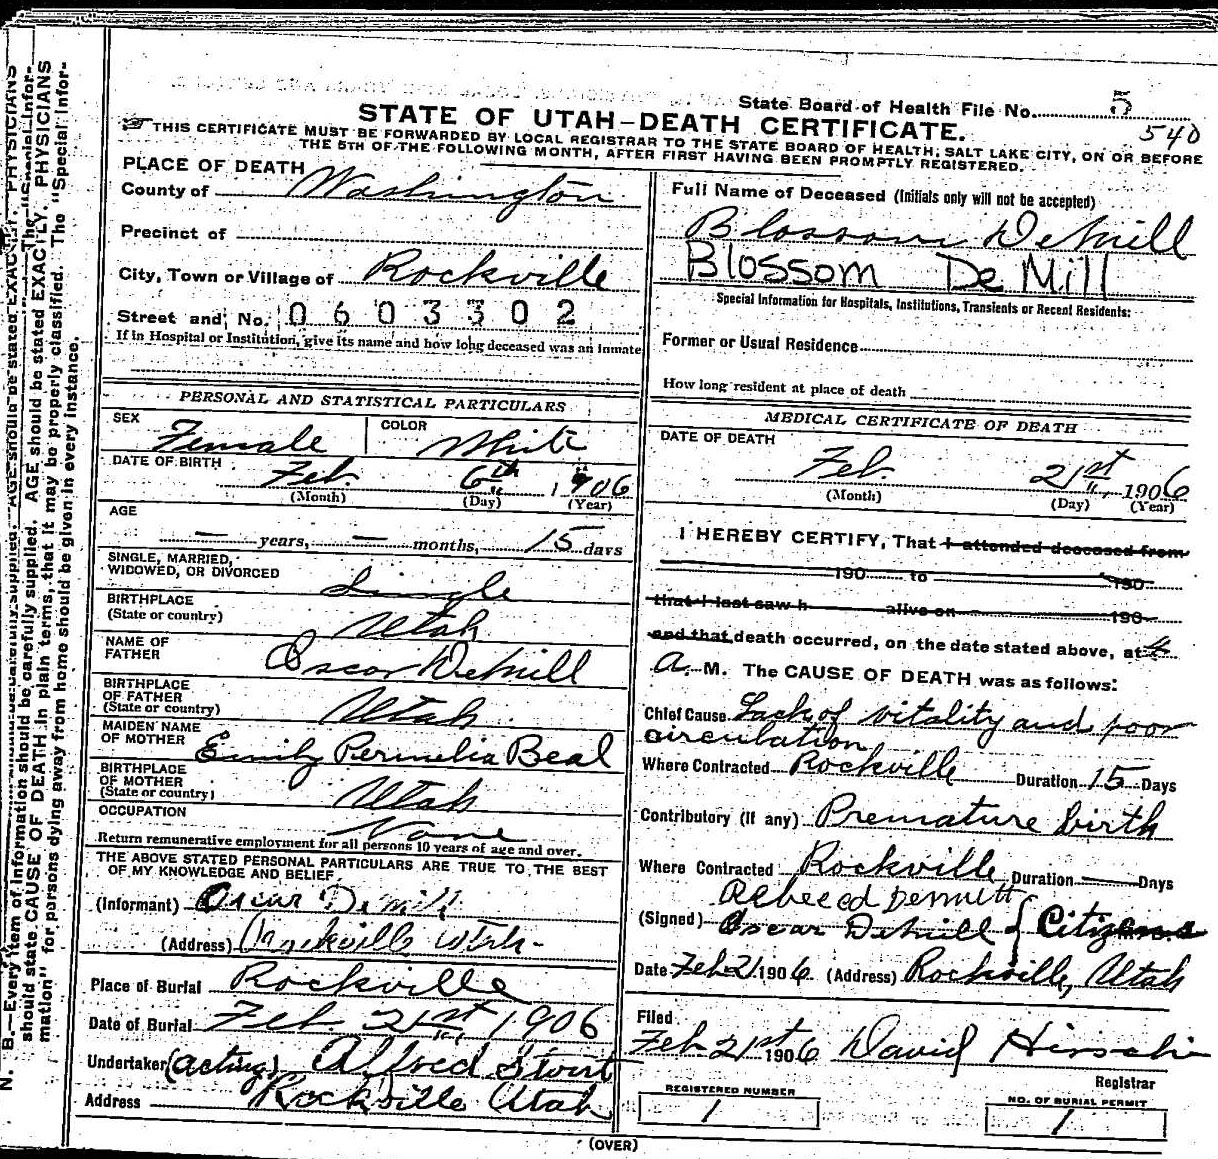 State Board of Health File No. 5
540
STATE OF UTAH—DEATH CERTIFICATE.
THIS CERTIFICATE MUST BE FORWARDED BY LOCAL REGISTRAR TO THE STATE BOARD OF HEALTH, SALT LAKE CITY, ON OR BEFORE
THE 5TH OF THE FOLLOWING MONTH, AFTER FIRST HAVING BEEN PROMPTLY REGISTERED.
PLACE OF DEATH
County of Washington
Precinct of
City, Town or Village of Rockville
Street and No. 0603302
If in Hospital or Institution, give its name and how long deceased was an inmate
Full Name of Deceased (Initials only will not be accepted)
Blossom DeMill
Blossom De Mill
Special Information for Hospitals, Institutions, Transients or Recent Residents:
Former or Usual Residence
How long resident at place of death
PERSONAL AND STATISTICAL PARTICULARS
SEX Female COLOR White
DATE OF BIRTH Feb. 6th 1906
(Month) (Day) (Year)
AGE
— years, — months, 15 days
SINGLE, MARRIED,
WIDOWED, OR DIVORCED Single
BIRTHPLACE
(State or country) Utah
NAME OF
FATHER Oscar DeMill
BIRTHPLACE
OF FATHER
(State or country) Utah
MAIDEN NAME
OF MOTHER Emily Permelia Beal
BIRTHPLACE
OF MOTHER
(State or country) Utah
OCCUPATION None
Return remunerative employment for all persons 10 years of age and over.
THE ABOVE STATED PERSONAL PARTICULARS ARE TRUE TO THE BEST
OF MY KNOWLEDGE AND BELIEF
(Informant) Oscar DeMill
(Address) Rockville Utah
Place of Burial Rockville
Date of Burial Feb. 21st 1906
Undertaker (acting) Alfred Stout
Address Rockville Utah
MEDICAL CERTIFICATE OF DEATH
DATE OF DEATH
Feb. 21st 1906
(Month) (Day) (Year)
I HEREBY CERTIFY, That I attended deceased from
190 to 190
that I last saw h alive on 190
and that death occurred, on the date stated above, at 4
a. M. The CAUSE OF DEATH was as follows:
Chief Cause Lack of vitality and poor
circulation
Where Contracted Rockville Duration 15 Days
Contributory (If any) Premature birth
Where Contracted Rockville Duration — Days
(Signed) Oscar DeMill Citizens
Date Feb 21 1906 (Address) Rockville, Utah
Filed
Feb 21st 1906 David Hirschi
Registrar
REGISTERED NUMBER
1
NO. OF BURIAL PERMIT
1
(OVER)
N. B.—Every item of information should be carefully supplied. AGE should be stated EXACTLY. PHYSICIANS
should state CAUSE OF DEATH in plain terms, that it may be properly classified. The "Special Infor-
mation" for persons dying away from home should be given in every instance.